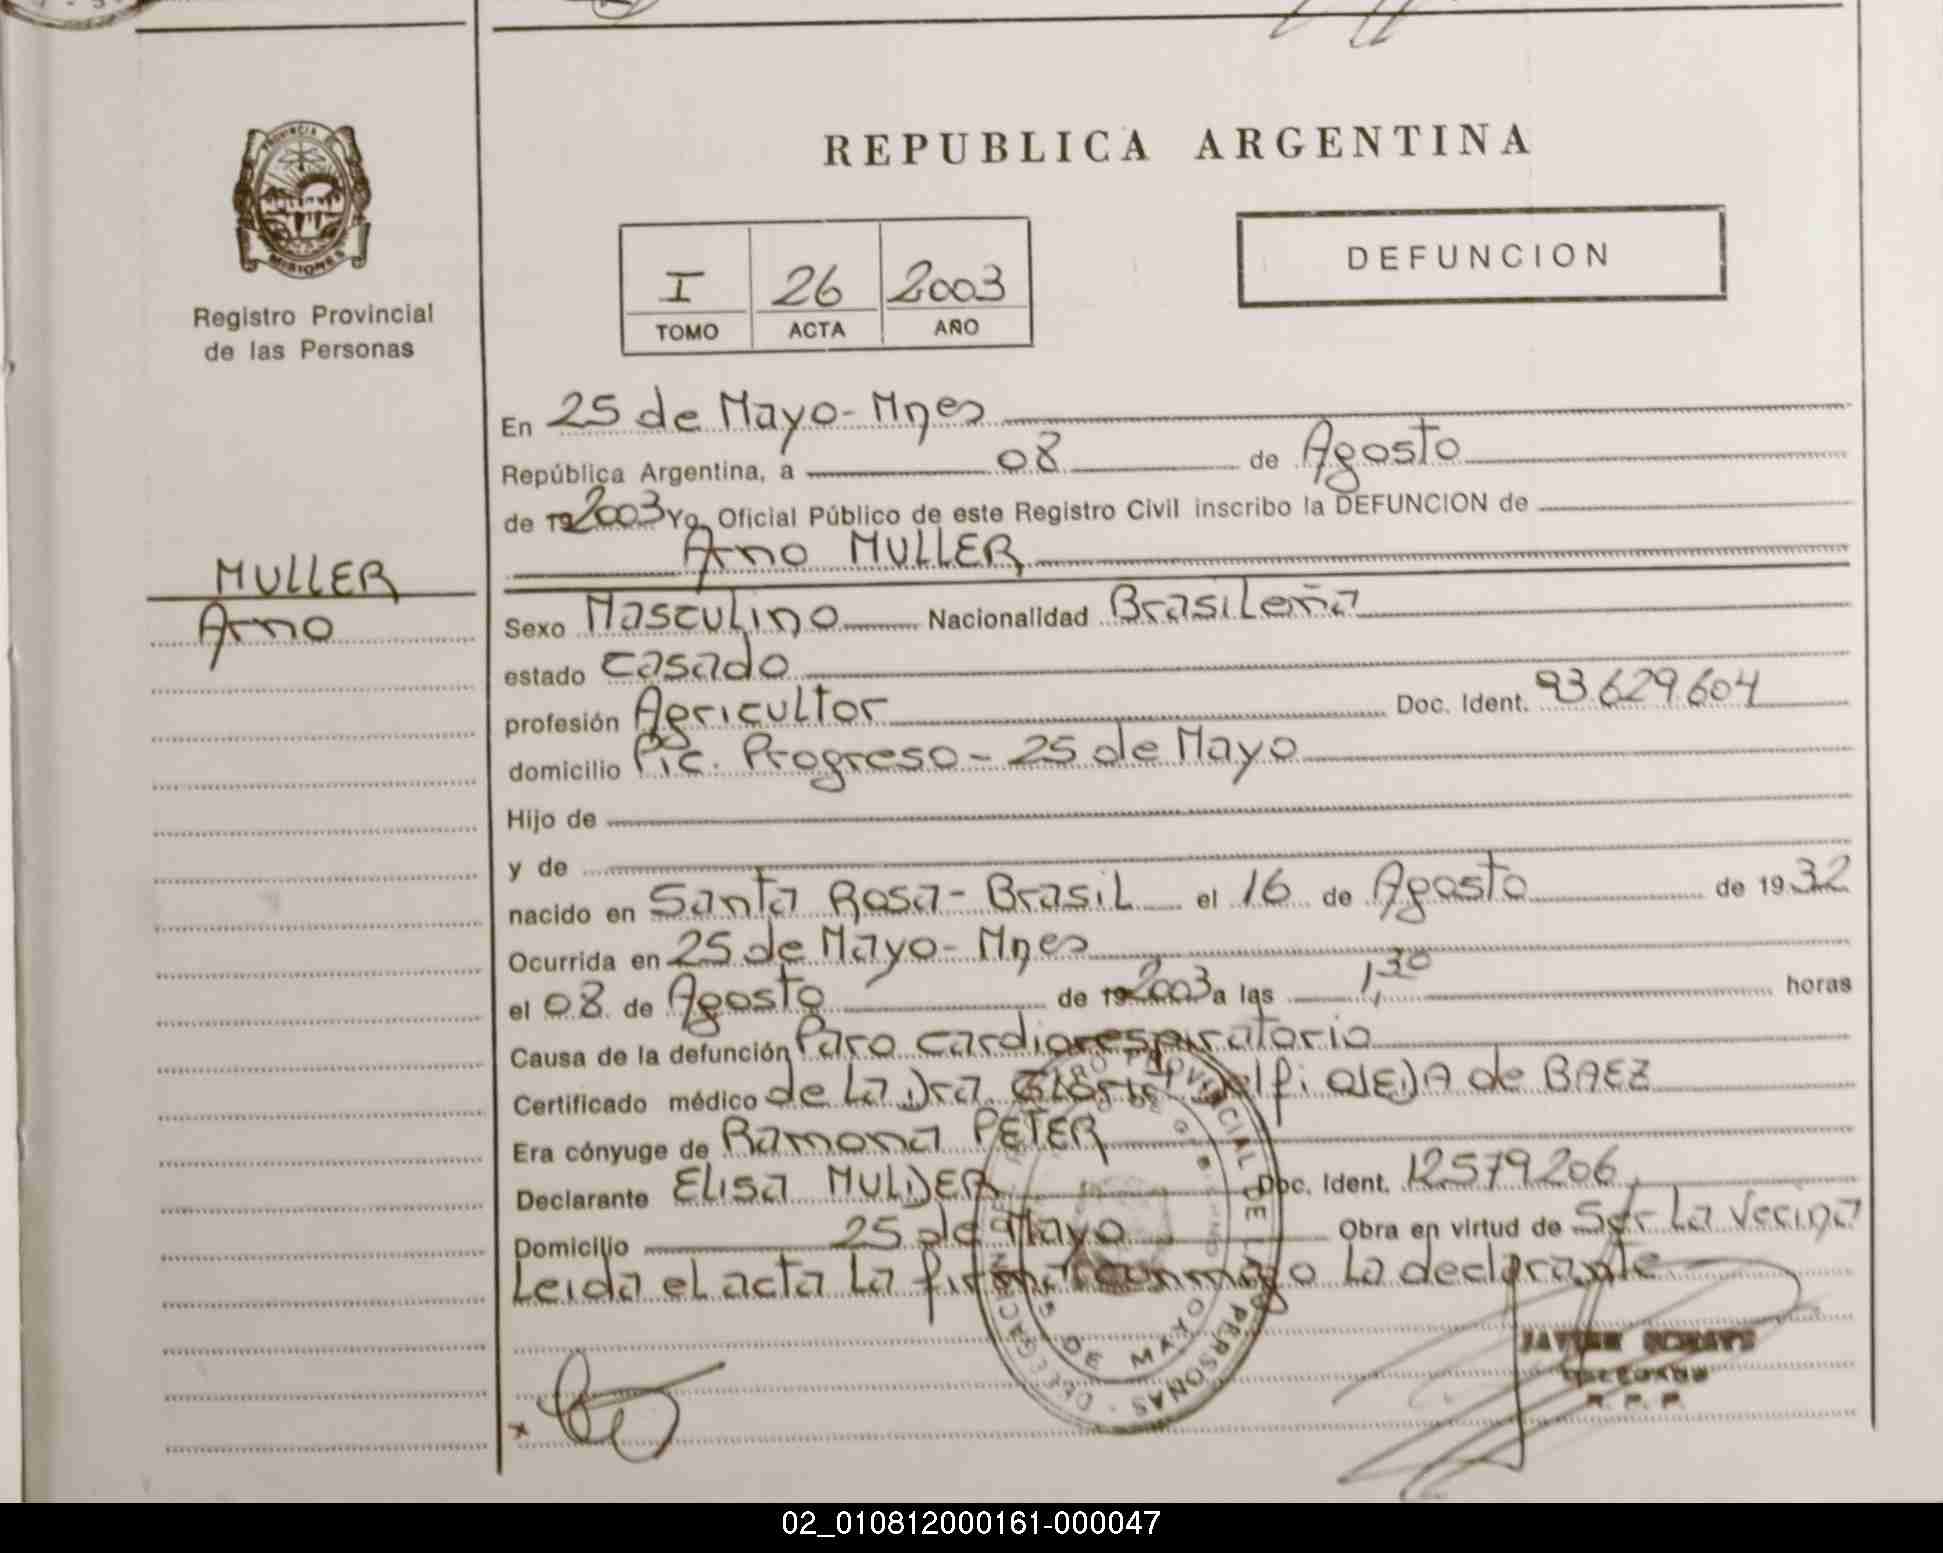 REPUBLICA ARGENTINA
PROVINCIA
MISIONES
Registro Provincial
de las Personas
DEFUNCION
I 26 2003
TOMO ACTA AÑO
En 25 de Mayo - Mnes
República Argentina, a 08 de Agosto
de 19 2003 Yo, Oficial Público de este Registro Civil inscribo la DEFUNCION de
Arno MULLER
MULLER
Arno
Sexo Masculino Nacionalidad Brasileña
estado casado
profesión Agricultor Doc. Ident. 93.629.604
domicilio Pic. Progreso - 25 de Mayo
Hijo de
y de
nacido en Santa Rosa - Brasil el 16 de Agosto de 1932
Ocurrida en 25 de Mayo - Mnes
el 08 de Agosto de 19 2003 a las 1,30 horas
Causa de la defunción Paro cardiorespiratorio
Certificado médico de la Dra. de BAEZ
Era cónyuge de Ramona PETER
Declarante Elisa MULDER Doc. Ident. 12579206
Domicilio 25 de Mayo Obra en virtud de Ser la vecina
Leida el acta la firma conmigo la declarante
REGISTRO PROVINCIAL DE LAS PERSONAS
DE MAYO
JAVIER
DELEGADO
R. P. P.
x
02_010812000161-000047